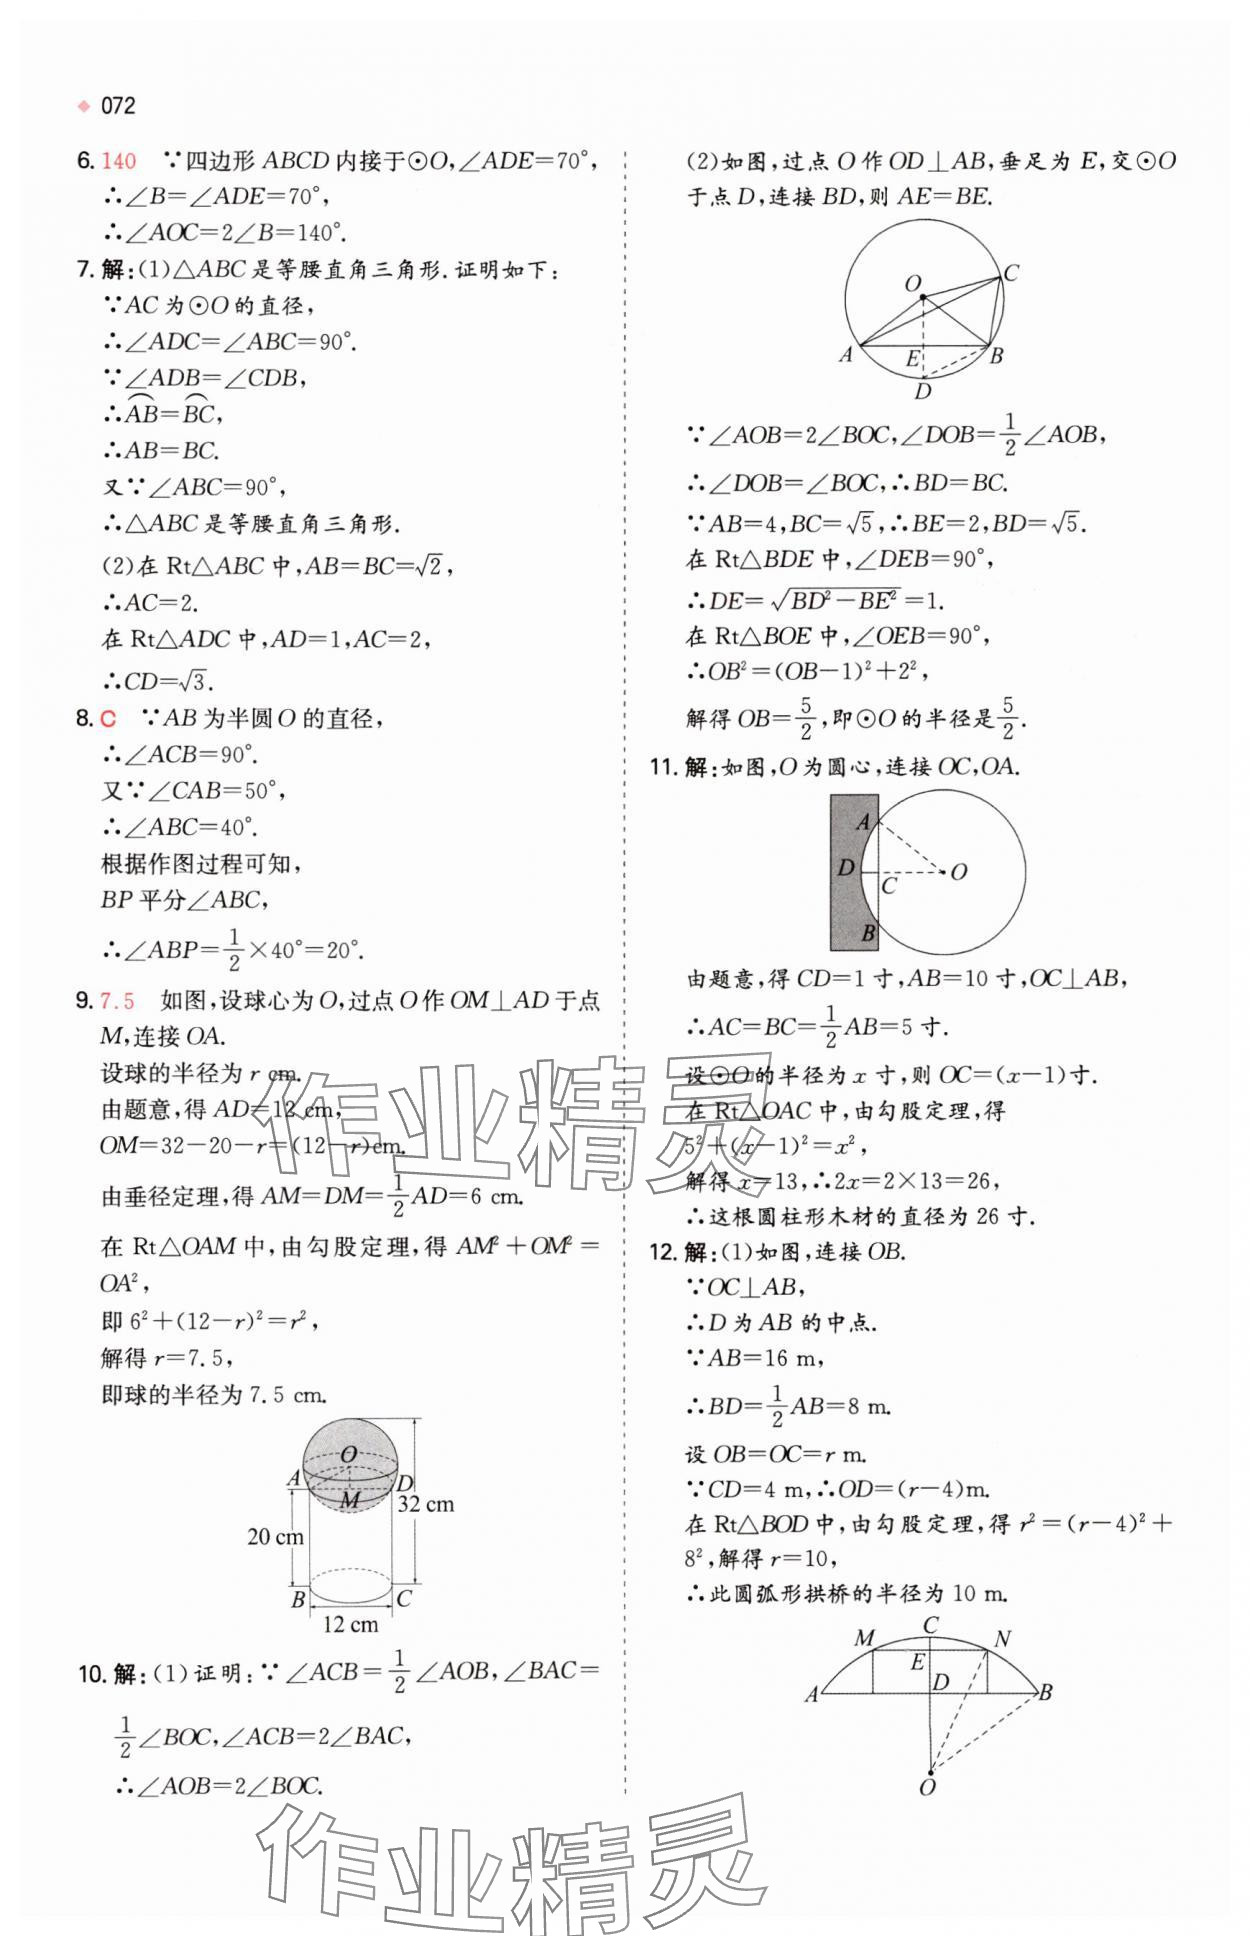 072
6. 140 ∵四边形 ABCD 内接于⊙O,∠ADE=70°,
∴∠B=∠ADE=70°,
∴∠AOC=2∠B=140°.
7. 解:(1)△ABC 是等腰直角三角形.证明如下:
∵AC 为⊙O 的直径,
∴∠ADC=∠ABC=90°.
∵∠ADB=∠CDB,
∴⌒AB=⌒BC,
∴AB=BC.
又∵∠ABC=90°,
∴△ABC 是等腰直角三角形.
(2)在 Rt△ABC 中,AB=BC=√2,
∴AC=2.
在 Rt△ADC 中,AD=1,AC=2,
∴CD=√3.
8. C ∵AB 为半圆 O 的直径,
∴∠ACB=90°.
又∵∠CAB=50°,
∴∠ABC=40°.
根据作图过程可知,
BP 平分∠ABC,
∴∠ABP=1/2×40°=20°.
9. 7.5 如图,设球心为 O,过点 O 作 OM⊥AD 于点
M,连接 OA.
设球的半径为 r cm.
由题意,得 AD=12 cm,
OM=32-20-r=(12-r)cm.
由垂径定理,得 AM=DM=1/2AD=6 cm.
在 Rt△OAM 中,由勾股定理,得 AM²+OM²=
OA²,
即 6²+(12-r)²=r²,
解得 r=7.5,
即球的半径为 7.5 cm.
O
A
D
M
32 cm
20 cm
B
C
12 cm
10. 解:(1)证明:∵∠ACB=1/2∠AOB,∠BAC=
1/2∠BOC,∠ACB=2∠BAC,
∴∠AOB=2∠BOC.
(2)如图,过点 O 作 OD⊥AB,垂足为 E,交⊙O
于点 D,连接 BD,则 AE=BE.
O
C
A
E
B
D
∵∠AOB=2∠BOC,∠DOB=1/2∠AOB,
∴∠DOB=∠BOC,∴BD=BC.
∵AB=4,BC=√5,∴BE=2,BD=√5.
在 Rt△BDE 中,∠DEB=90°,
∴DE=√(BD²-BE²)=1.
在 Rt△BOE 中,∠OEB=90°,
∴OB²=(OB-1)²+2²,
解得 OB=5/2,即⊙O 的半径是5/2.
11. 解:如图,O 为圆心,连接 OC,OA.
A
D
C
O
B
由题意,得 CD=1 寸,AB=10 寸,OC⊥AB,
∴AC=BC=1/2AB=5 寸.
设⊙O 的半径为 x 寸,则 OC=(x-1)寸.
在 Rt△OAC 中,由勾股定理,得
5²+(x-1)²=x²,
解得 x=13,∴2x=2×13=26,
∴这根圆柱形木材的直径为 26 寸.
12. 解:(1)如图,连接 OB.
∵OC⊥AB,
∴D 为 AB 的中点.
∵AB=16 m,
∴BD=1/2AB=8 m.
设 OB=OC=r m.
∵CD=4 m,∴OD=(r-4)m.
在 Rt△BOD 中,由勾股定理,得 r²=(r-4)²+
8²,解得 r=10,
∴此圆弧形拱桥的半径为 10 m.
C
M
N
E
A
D
B
O
作业精灵
作业精灵